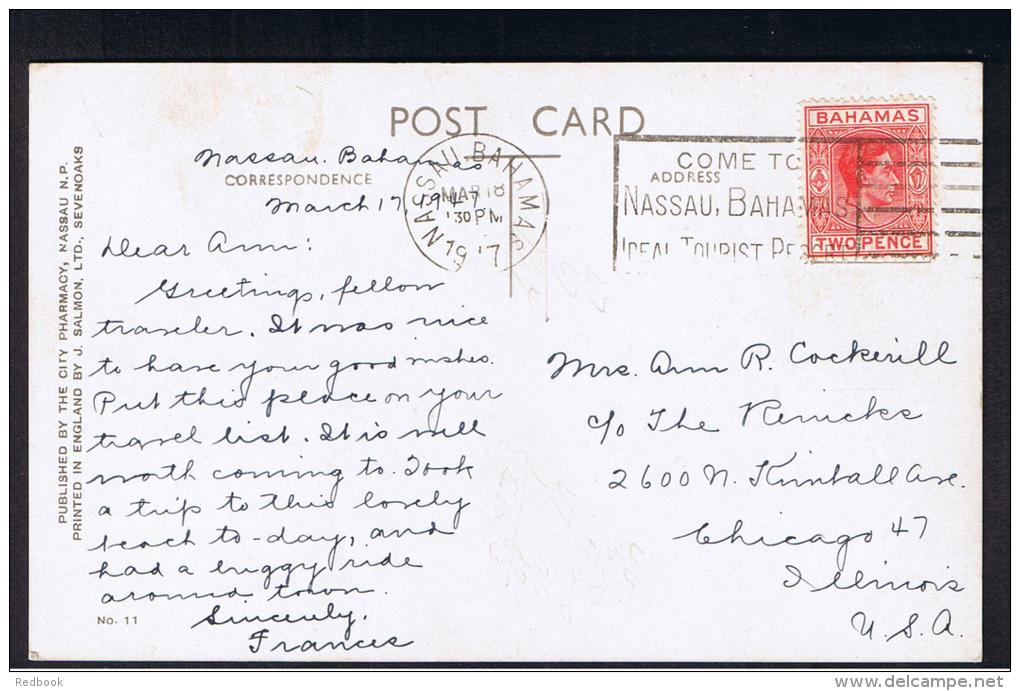 POST CARD
BAHAMAS
TWO PENCE
NASSAU. BAHAMAS
MAR 18
30 PM
1947
COME TO
NASSAU, BAHAMAS
IDEAL TOURIST RESORT
CORRESPONDENCE
ADDRESS
Nassau. Bahamas
March 17, 1947
Dear Ann:
Greetings, fellow
traveler. It was nice
to have your good wishes.
Put this place on your
travel list. It is well
worth coming to. Took
a trip to this lovely
beach to-day, and
had a buggy ride
around town.
Sincerely,
Frances
Mrs. Ann R. Cockerill
c/o The Renicks
2600 N. Kimball Ave.
Chicago 47
Illinois
U.S.A.
PUBLISHED BY THE CITY PHARMACY, NASSAU N.P.
PRINTED IN ENGLAND BY J. SALMON, LTD., SEVENOAKS
No. 11
Redbook
www.delcampe.net